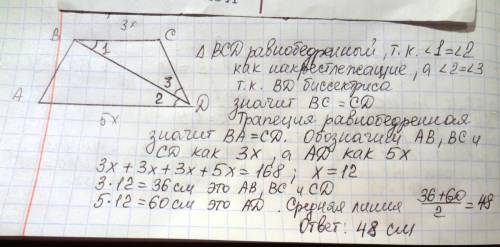 3x
B
C
1
3
2
A
D
5x
Δ BCD равнобедренный, т.к. ∠1=∠2
как накрестлежащие, а ∠2=∠3
т.к. BD биссектриса
значит BC = CD
Трапеция равнобедренная
значит BA=CD. Обозначим AB, BC и
CD как 3x, а AD как 5x
3x + 3x + 3x + 5x = 168; x = 12
3·12 = 36 см это AB, BC и CD
5·12 = 60 см это AD. Средняя линия (36+60)/2 = 48
Ответ: 48 см